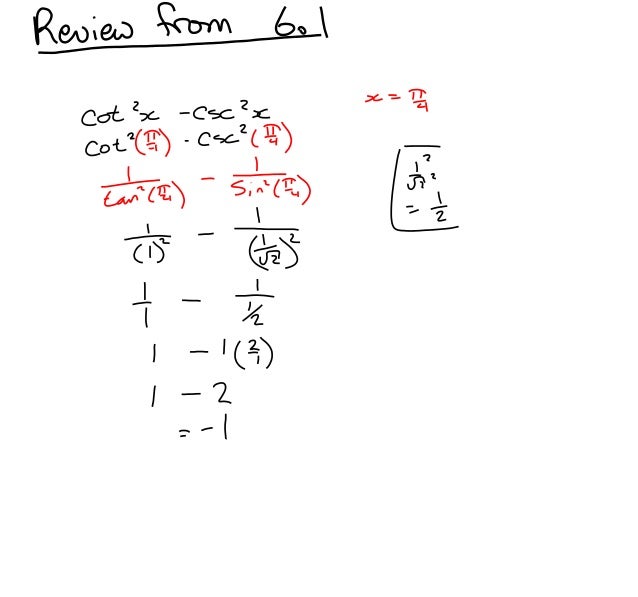 Review from 6.1
cot²x - csc²x
x = π/4
cot²(π/4) - csc²(π/4)
1/tan²(π/4) - 1/Sin²(π/4)
1²/√2² = 1/2
1/(1)² - 1/(1/√2)²
1/1 - 1/(1/2)
1 - 1(2/1)
1 - 2
= -1